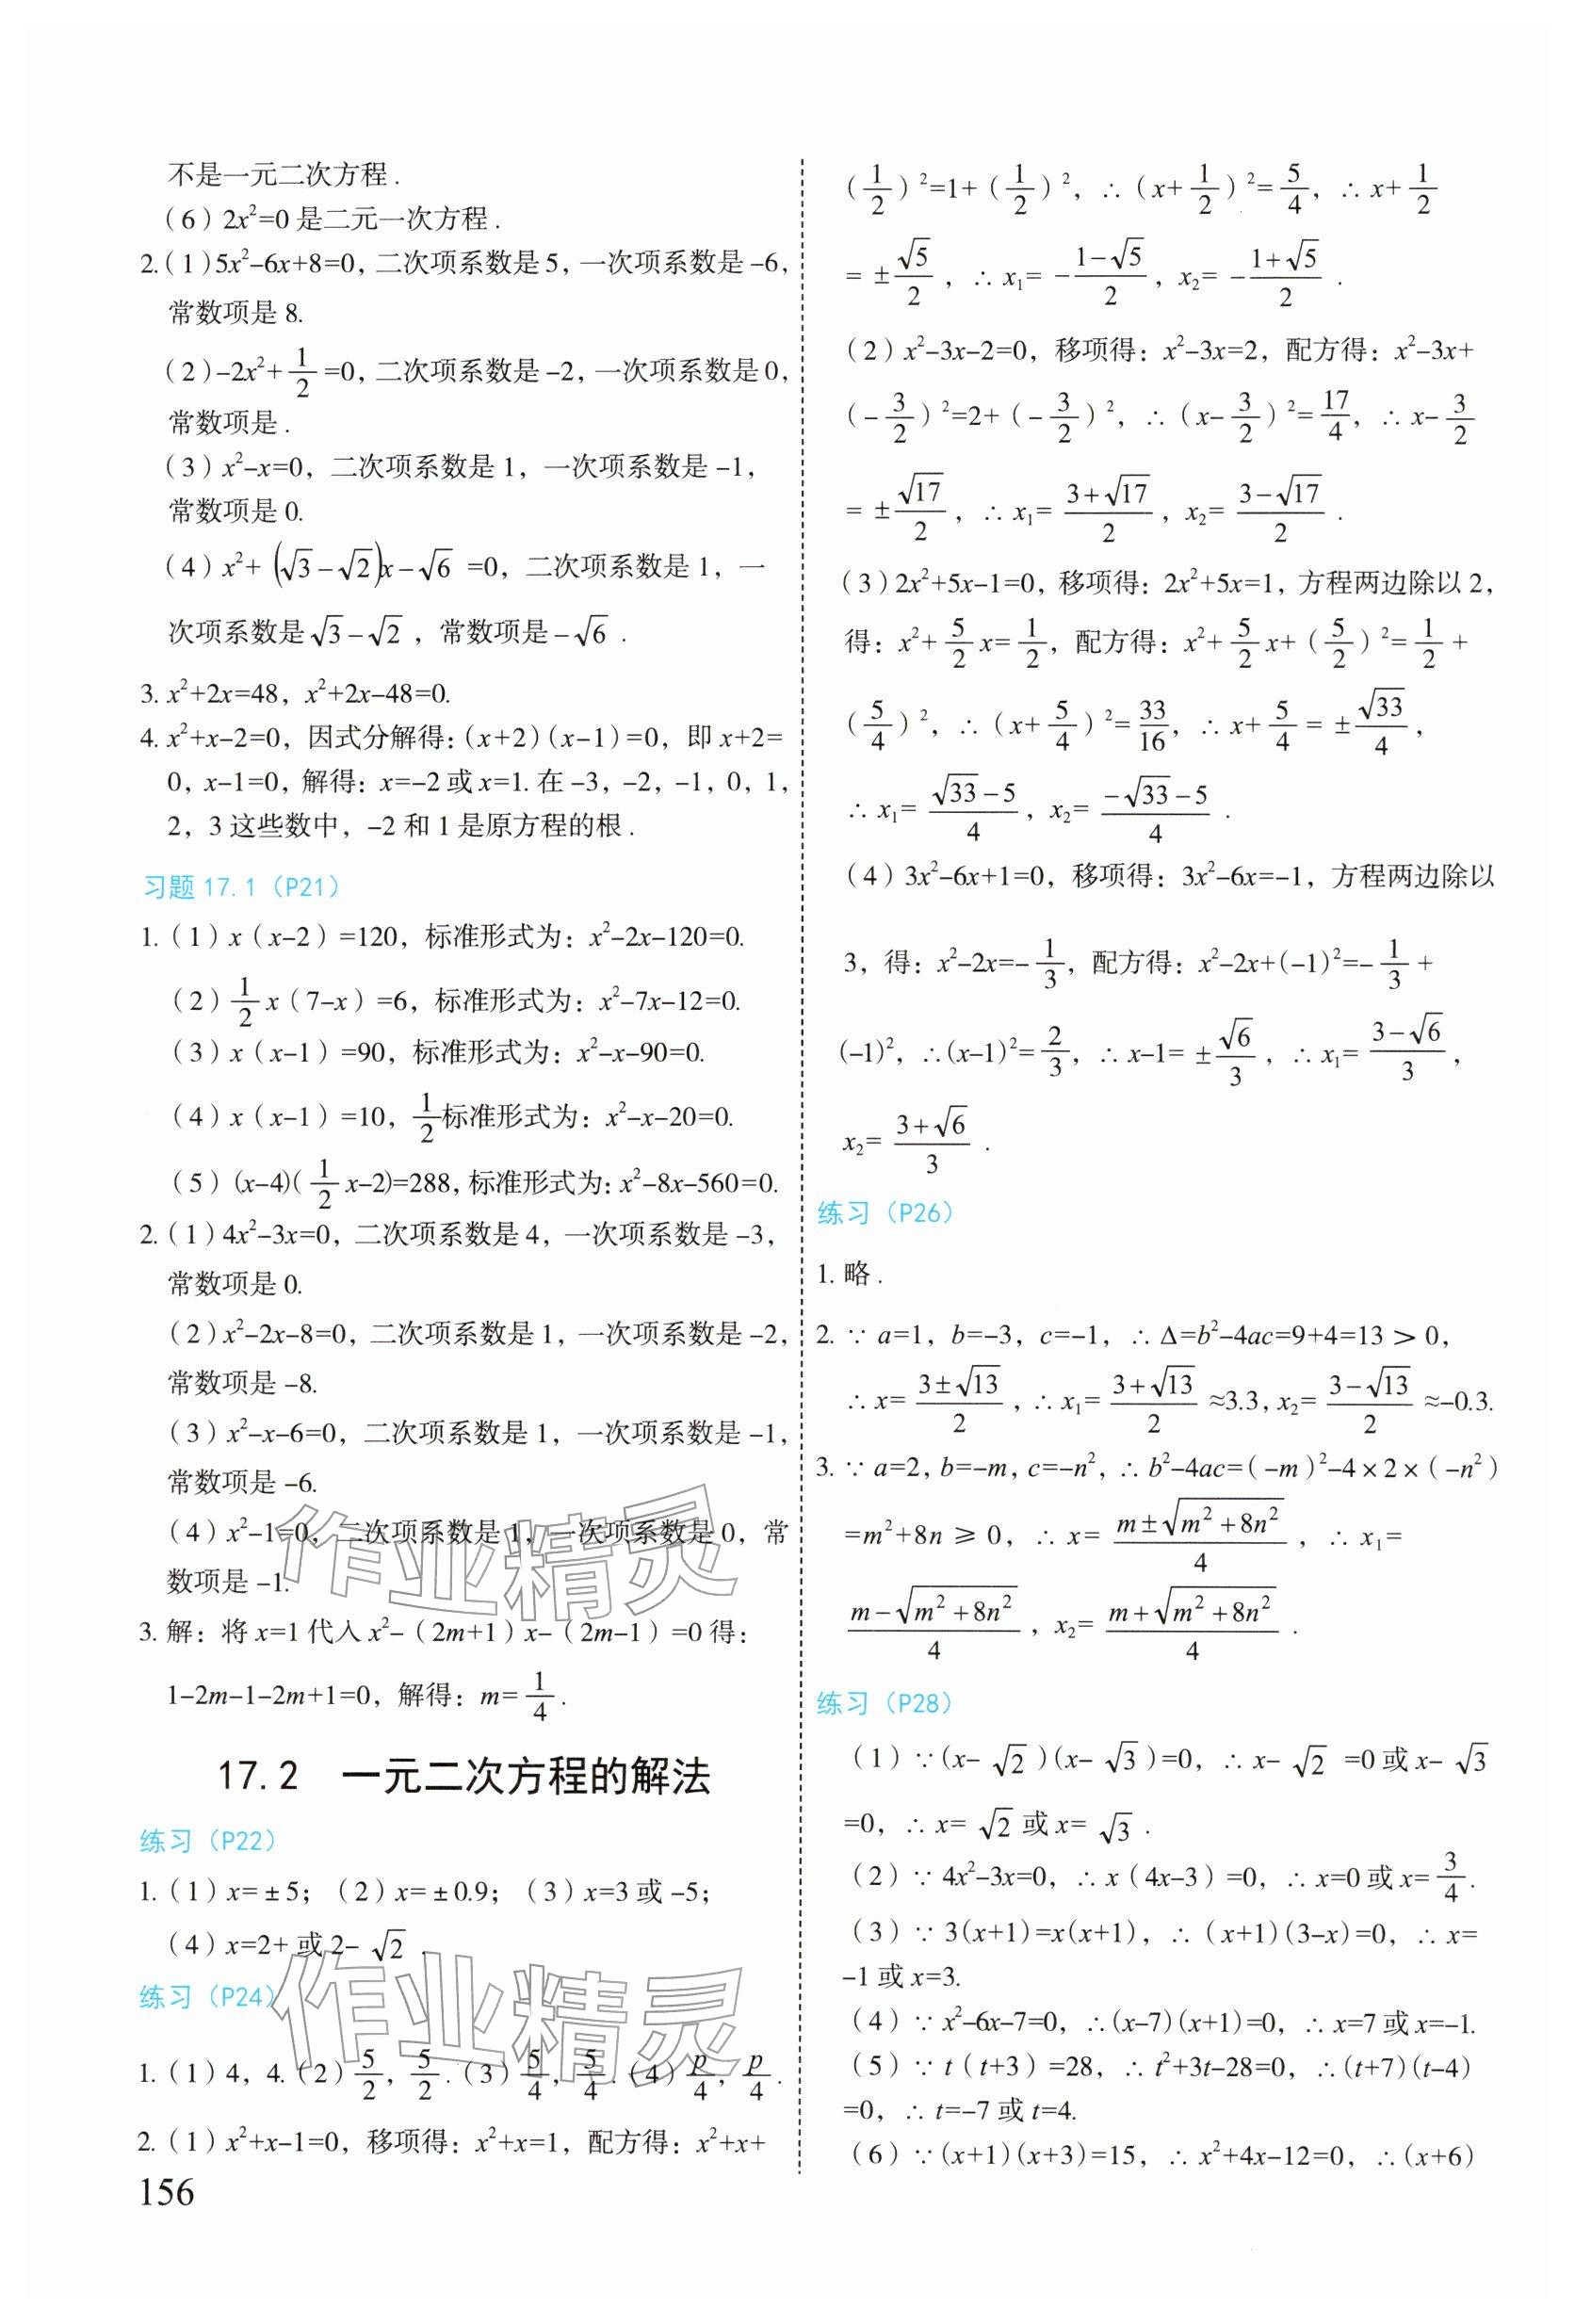 不是一元二次方程.
(6) 2x²=0 是二元一次方程.
2.(1)5x²-6x+8=0,二次项系数是5,一次项系数是-6,
常数项是 8.
(2)-2x²+1/2=0,二次项系数是-2,一次项系数是0,
常数项是.
(3) x²-x=0, 二次项系数是1, 一次项系数是-1,
常数项是 0.
(4) x²+(√3-√2)x-√6=0, 二次项系数是1, 一
次项系数是√3-√2, 常数项是-√6.
3. x²+2x=48, x²+2x-48=0.
4. x²+x-2=0, 因式分解得:(x+2)(x-1)=0, 即x+2=
0, x-1=0, 解得: x=-2或x=1.在-3, -2, -1, 0, 1,
2, 3这些数中, -2和1是原方程的根.
习题 17.1(P21)
1.(1) x(x-2)=120, 标准形式为: x²-2x-120=0.
(2) 1/2 x(7-x)=6, 标准形式为: x²-7x-12=0.
(3) x(x-1)=90, 标准形式为: x²-x-90=0.
(4) x(x-1)=10, 1/2标准形式为: x²-x-20=0.
(5) (x-4)(1/2 x-2)=288,标准形式为:x²-8x-560=0.
2.(1) 4x²-3x=0, 二次项系数是4, 一次项系数是-3,
常数项是 0.
(2) x²-2x-8=0, 二次项系数是1, 一次项系数是-2,
常数项是 -8.
(3) x²-x-6=0, 二次项系数是1, 一次项系数是-1,
常数项是 -6.
(4) x²-1=0, 二次项系数是1, 一次项系数是0, 常
数项是 -1.
3. 解: 将x=1代入x²-(2m+1)x-(2m-1)=0得:
1-2m-1-2m+1=0, 解得: m=1/4.
17.2 一元二次方程的解法
练习(P22)
1.(1) x=±5; (2) x=±0.9; (3) x=3或-5;
(4) x=2+或2-√2.
练习(P24)
1.(1)4, 4.(2)5/2, 5/2.(3)5/4, 5/4.(4)p/4, p/4.
2.(1) x²+x-1=0, 移项得: x²+x=1, 配方得: x²+x+
156
(1/2)²=1+(1/2)², ∴(x+1/2)²=5/4, ∴x+1/2
=±√5/2, ∴x₁=-(1-√5)/2, x₂=-(1+√5)/2.
(2) x²-3x-2=0, 移项得: x²-3x=2, 配方得: x²-3x+
(-3/2)²=2+(-3/2)², ∴(x-3/2)²=17/4, ∴x-3/2
=±√17/2, ∴x₁=(3+√17)/2, x₂=(3-√17)/2.
(3)2x²+5x-1=0, 移项得: 2x²+5x=1, 方程两边除以2,
得: x²+5/2 x=1/2, 配方得: x²+5/2 x+(5/2)²=1/2+
(5/4)², ∴(x+5/4)²=33/16, ∴x+5/4=±√33/4,
∴x₁=(√33-5)/4, x₂=(-√33-5)/4.
(4) 3x²-6x+1=0, 移项得: 3x²-6x=-1, 方程两边除以
3, 得: x²-2x=-1/3, 配方得: x²-2x+(-1)²=-1/3+
(-1)², ∴(x-1)²=2/3, ∴x-1=±√6/3, ∴x₁=(3-√6)/3,
x₂=(3+√6)/3.
练习(P26)
1. 略.
2. ∵a=1, b=-3, c=-1, ∴Δ=b²-4ac=9+4=13>0,
∴x=(3±√13)/2, ∴x₁=(3+√13)/2≈3.3, x₂=(3-√13)/2≈-0.3.
3. ∵a=2, b=-m, c=-n², ∴b²-4ac=(-m)²-4×2×(-n²)
=m²+8n≥0, ∴x=(m±√(m²+8n²))/4, ∴x₁=
(m-√(m²+8n²))/4, x₂=(m+√(m²+8n²))/4.
练习(P28)
(1) ∵(x-√2)(x-√3)=0, ∴x-√2=0或x-√3
=0, ∴x=√2或x=√3.
(2) ∵4x²-3x=0, ∴x(4x-3)=0, ∴x=0或x=3/4.
(3) ∵3(x+1)=x(x+1), ∴(x+1)(3-x)=0, ∴x=
-1或x=3.
(4) ∵x²-6x-7=0, ∴(x-7)(x+1)=0, ∴x=7或x=-1.
(5) ∵t(t+3)=28, ∴t²+3t-28=0, ∴(t+7)(t-4)
=0, ∴t=-7或t=4.
(6) ∵(x+1)(x+3)=15, ∴x²+4x-12=0, ∴(x+6)
作业精灵
作业精灵